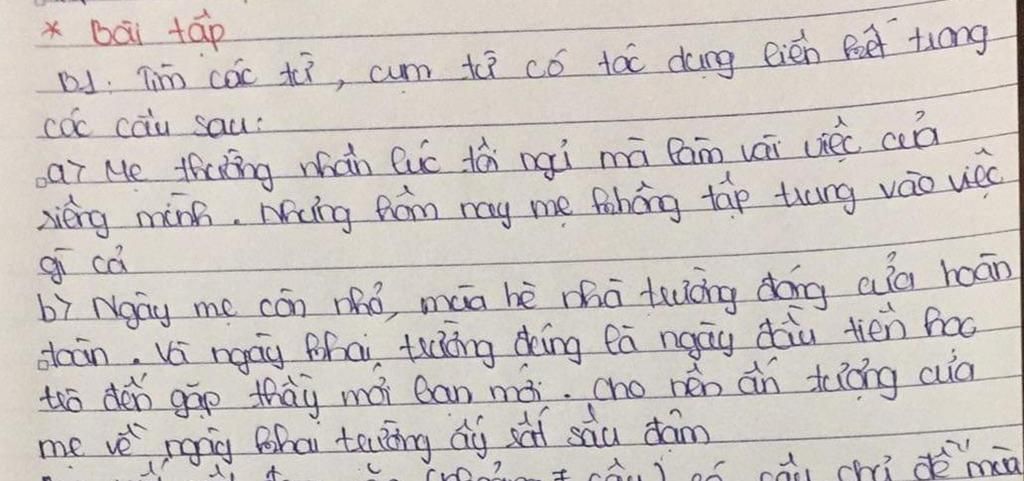 * Bài tập
B1: Tìm các từ, cụm từ có tác dụng liên kết trong
các câu sau:
a> Mẹ thường nhân lúc tôi ngủ mà làm vài việc của
riêng mình. Nhưng hôm nay mẹ không tập trung vào việc
gì cả
b> Ngày mẹ còn nhỏ, mùa hè nhà trường đóng cửa hoàn
toàn. Vì ngày khai trường đúng là ngày đầu tiên học
trò đến gặp thầy mới bạn mới. Cho nên ấn tượng của
mẹ về ngày khai trường ấy rất sâu đậm
câu) có câu chủ đề mùa